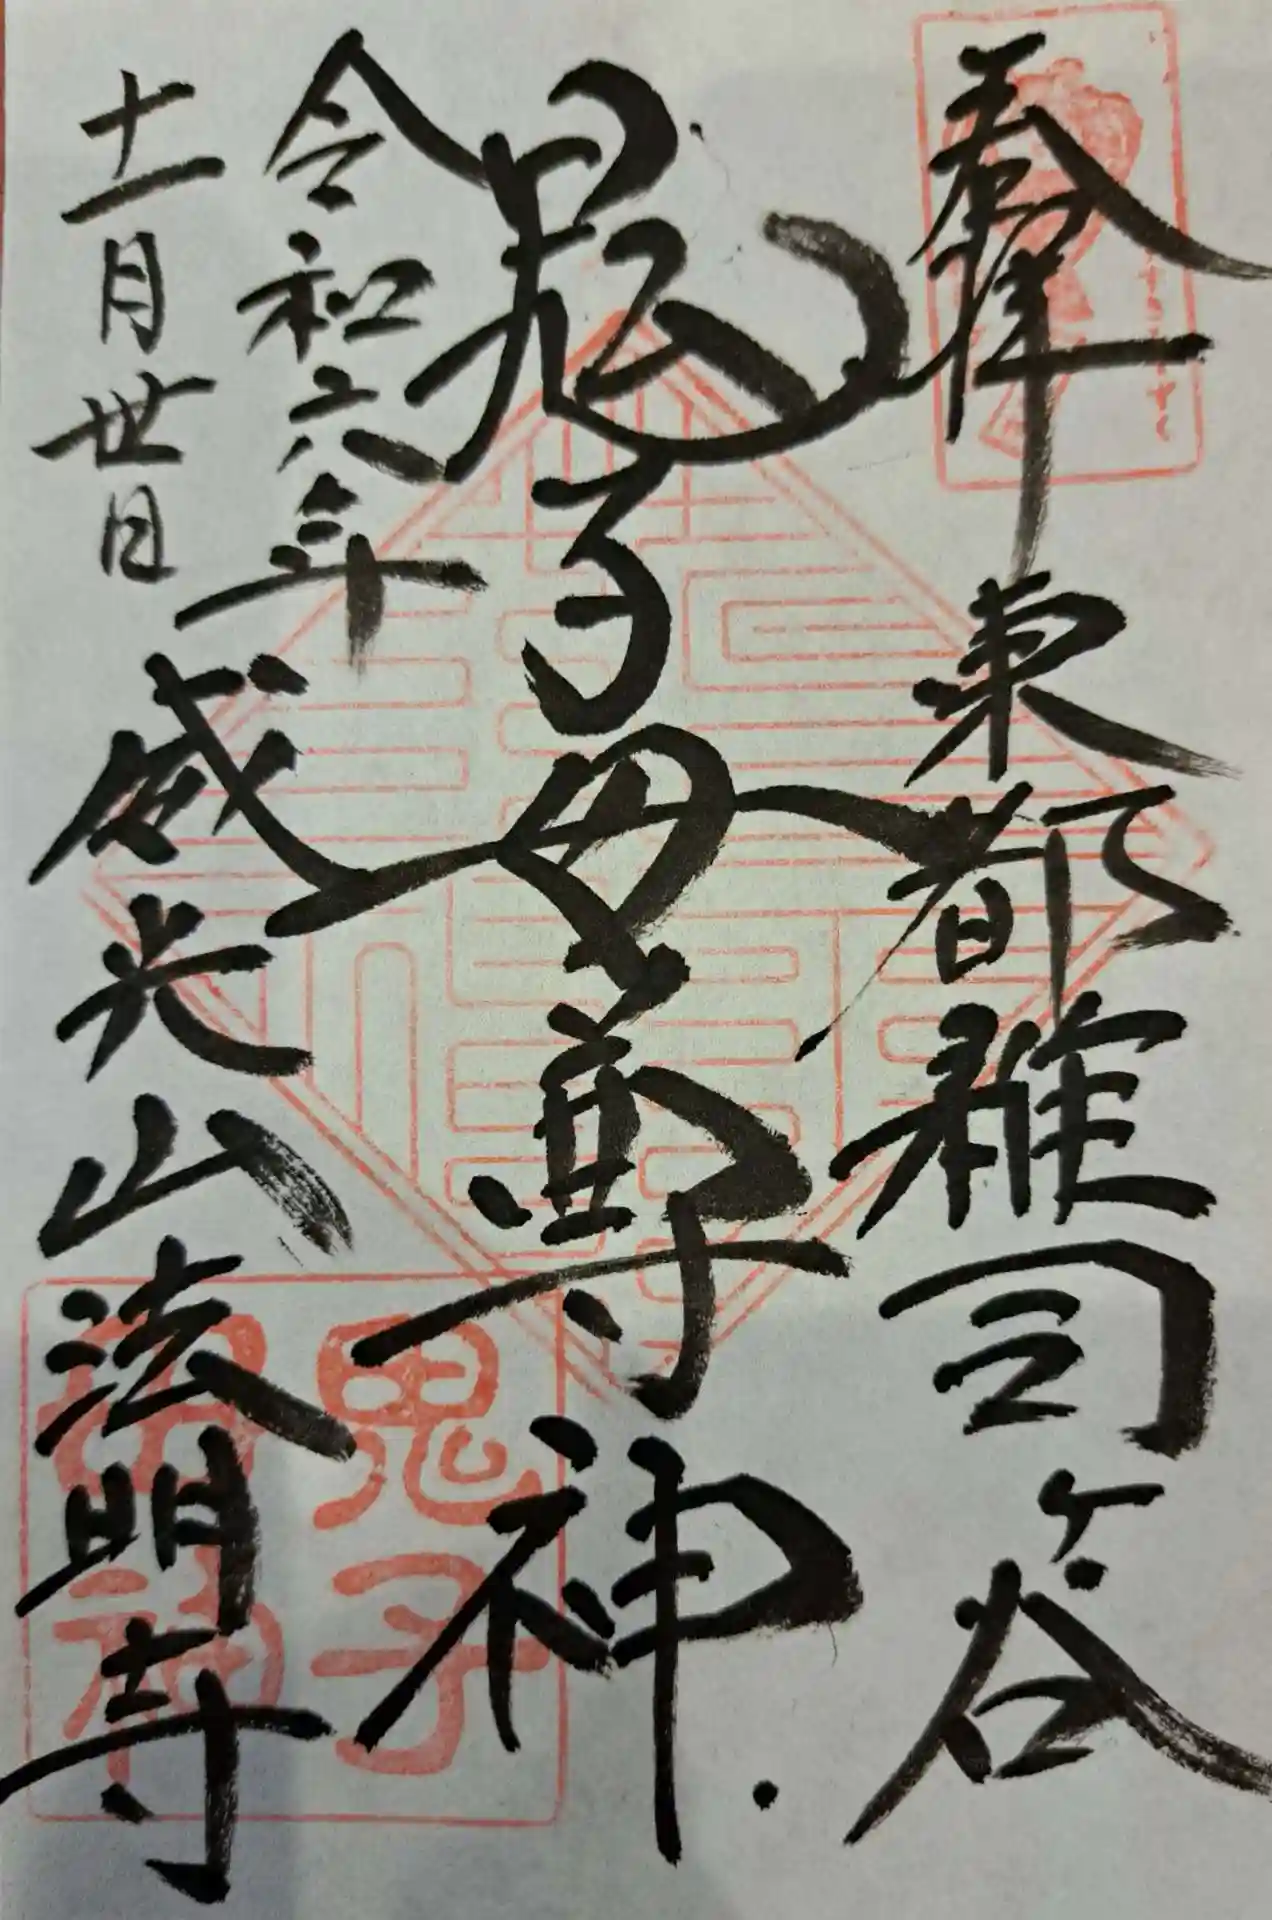 奉拝 東都雑司ケ谷
鬼子母尊神
令和六年
十一月丗日
威光山法明寺
鬼子
母神